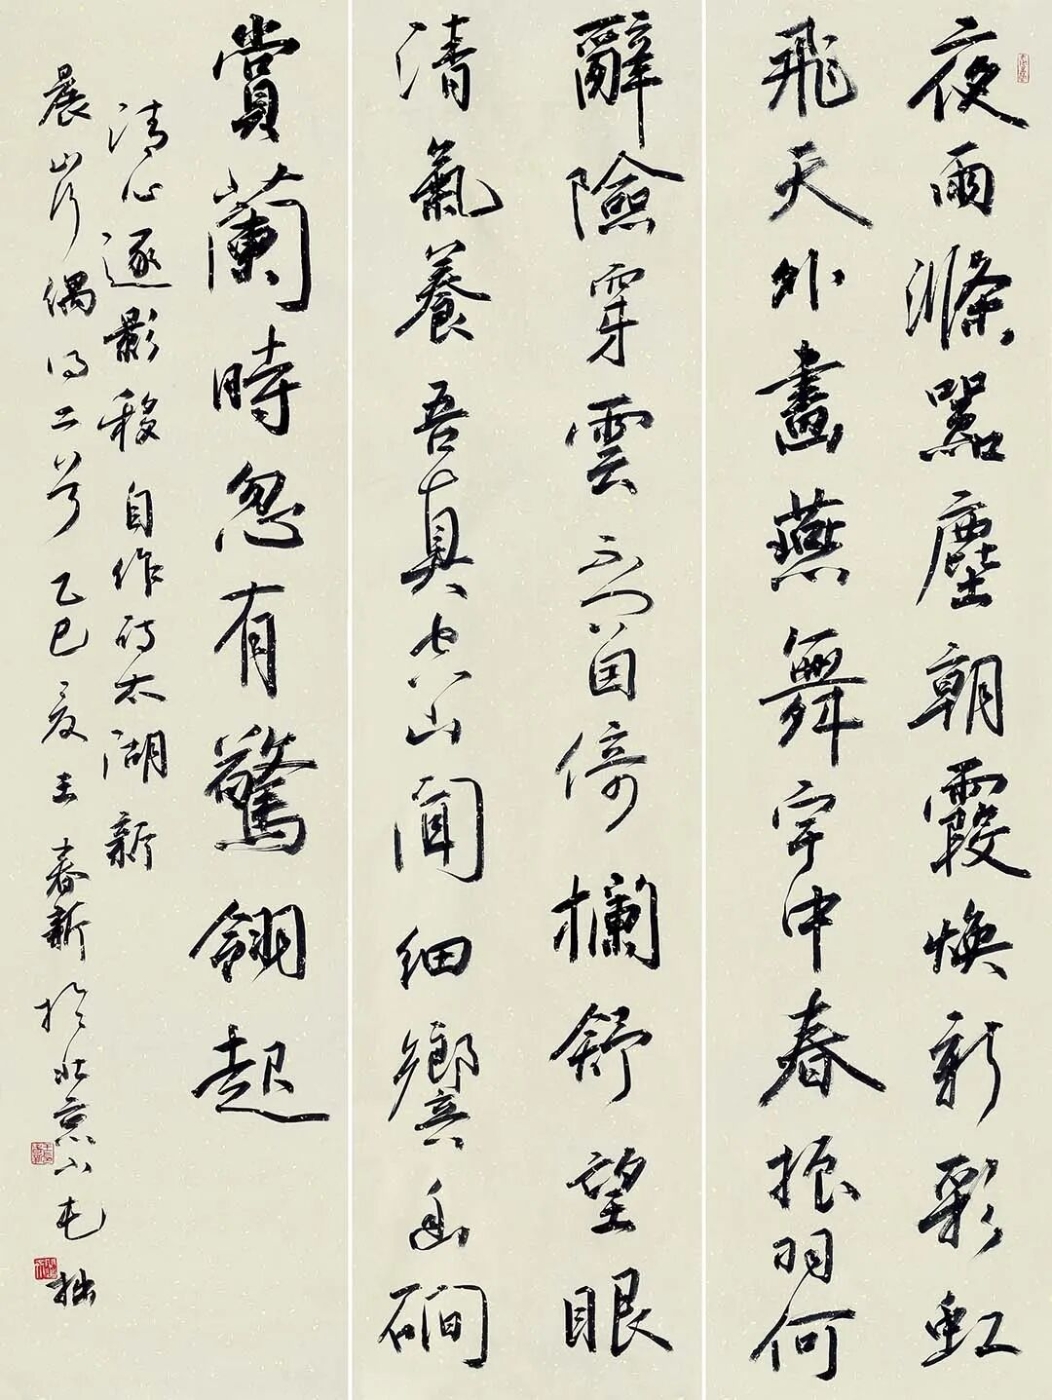 夜雨滌囂塵朝霞煥新彩虹
飛天外畫燕舞宇中春振羽何
辭險穿雲不問因倚欄舒望眼
清氣養吾真空山聞細響幽磵
賞蘭時忽有驚翎起
清心逐影移 自作詩太湖新
晨山行偶得二首 乙巳夏王春新於北京小屯 拙